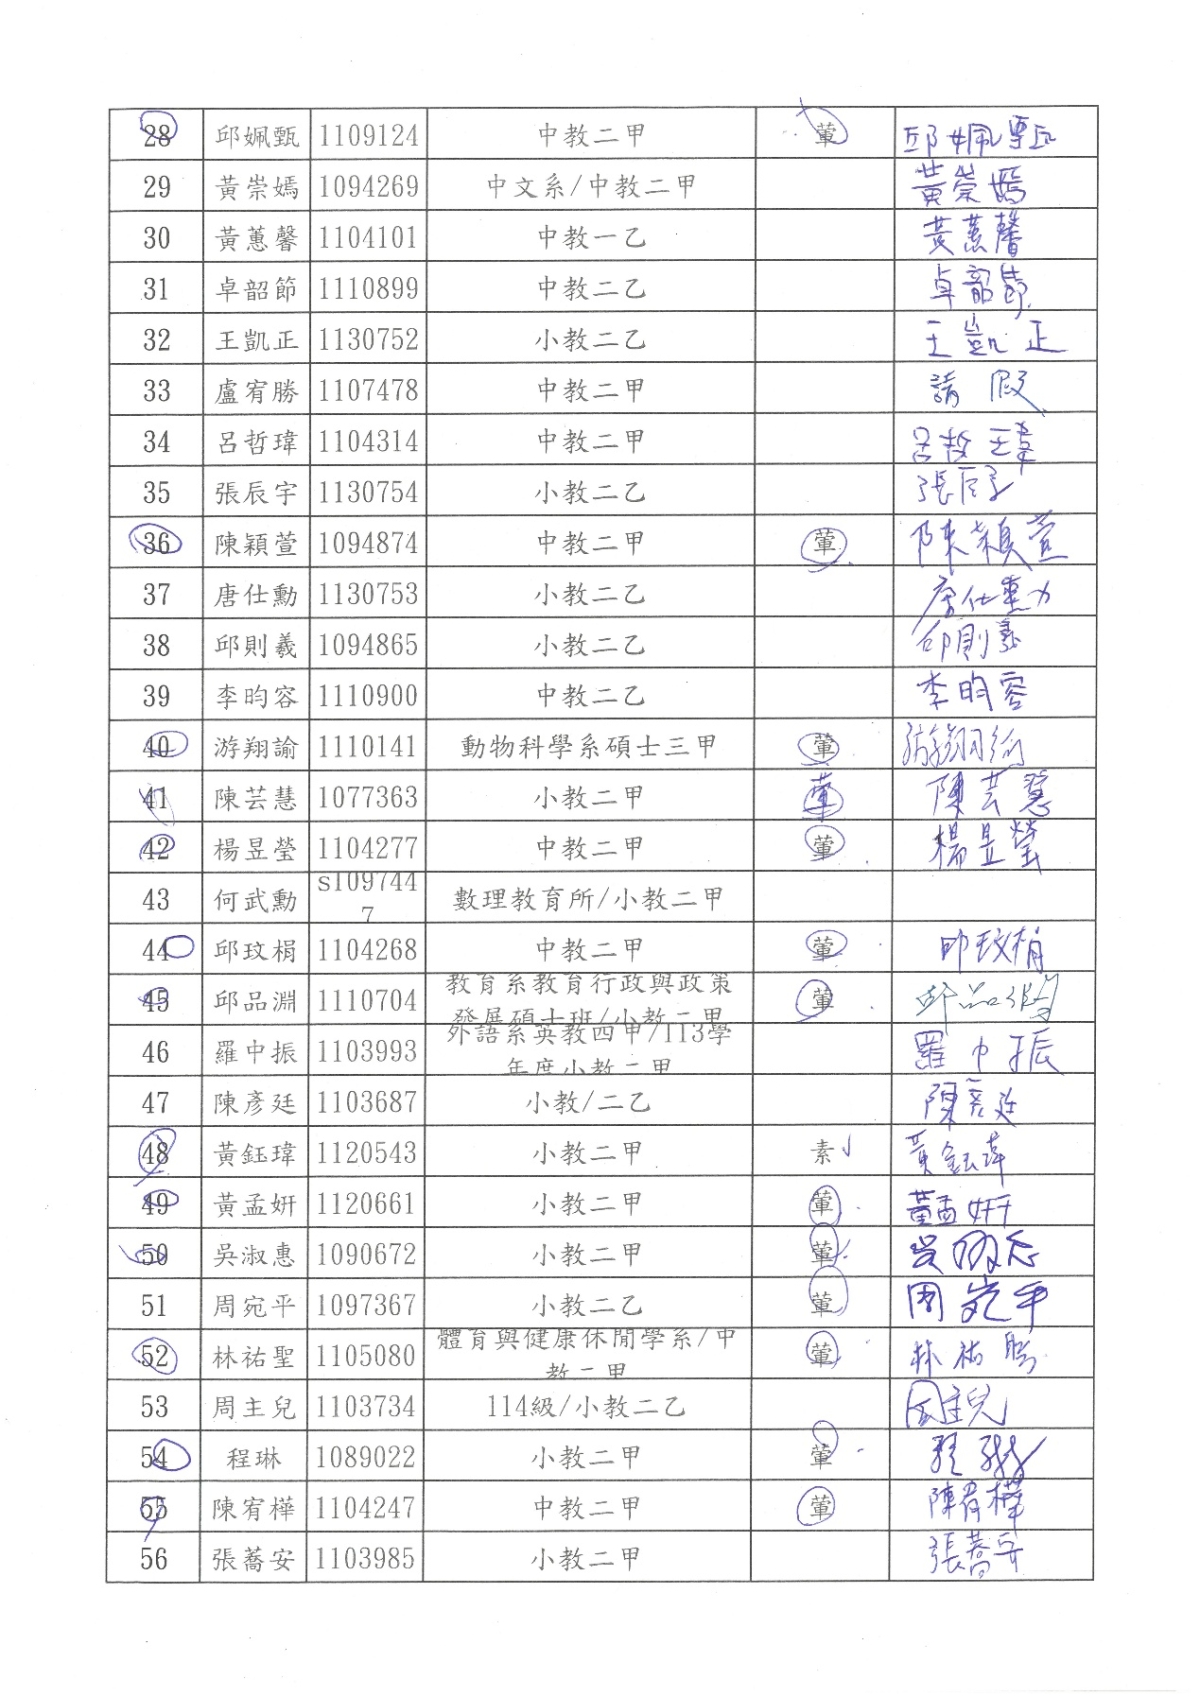 28 邱姵甄 1109124 中教二甲 葷 邱姵甄
29 黃崇嫣 1094269 中文系/中教二甲 黃崇嫣
30 黃蕙馨 1104101 中教一乙 黃蕙馨
31 卓韶節 1110899 中教二乙 卓韶節
32 王凱正 1130752 小教二乙 王凱正
33 盧宥勝 1107478 中教二甲 請假
34 呂哲瑋 1104314 中教二甲 呂哲瑋
35 張辰宇 1130754 小教二乙 張辰宇
36 陳穎萱 1094874 中教二甲 葷 陳穎萱
37 唐仕勳 1130753 小教二乙 唐仕勳
38 邱則羲 1094865 小教二乙 邱則羲
39 李昀容 1110900 中教二乙 李昀容
40 游翔諭 1110141 動物科學系碩士三甲 葷 游翔諭
41 陳芸慧 1077363 小教二甲 葷 陳芸慧
42 楊昱瑩 1104277 中教二甲 葷 楊昱瑩
43 何武勳 s1097447 數理教育所/小教二甲
44 邱玟梋 1104268 中教二甲 葷 邱玟梋
45 邱品淵 1110704 教育系教育行政與政策
發展碩士班/小教二甲 葷 邱品淵
46 羅中振 1103993 外語系英教四甲/113學
年度小教二甲 羅中振
47 陳彥廷 1103687 小教/二乙 陳彥廷
48 黃鈺瑋 1120543 小教二甲 素 黃鈺瑋
49 黃孟妍 1120661 小教二甲 葷 黃孟妍
50 吳淑惠 1090672 小教二甲 葷 吳淑惠
51 周宛平 1097367 小教二乙 葷 周宛平
52 林祐聖 1105080 體育與健康休閒學系/中
教二甲 葷 林祐聖
53 周主兒 1103734 114級/小教二乙 周主兒
54 程琳 1089022 小教二甲 葷 程琳
55 陳宥樺 1104247 中教二甲 葷 陳宥樺
56 張蕎安 1103985 小教二甲 張蕎安